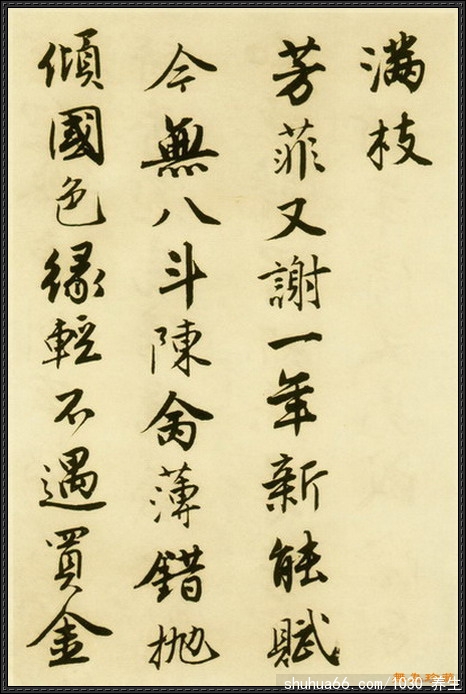 滿枝
芳菲又謝一年新能賦
今無八斗陳命薄錯拋
傾國色緣輕不遇買金
shuhua66.com/1030_养生